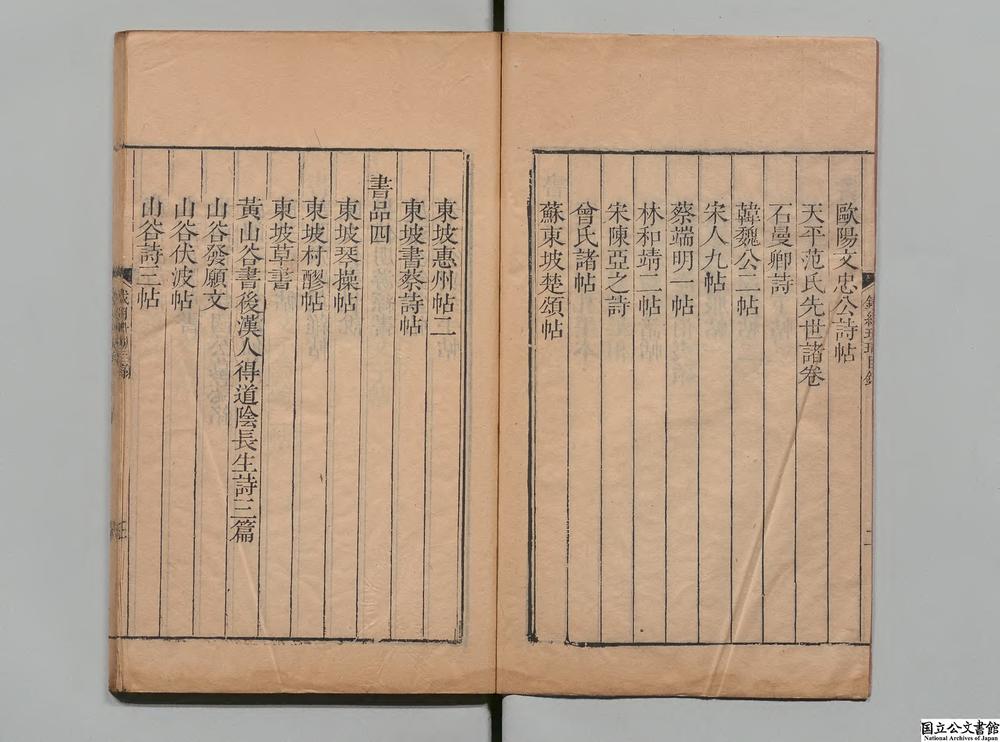 歐陽文忠公詩帖
天平范氏先世諸卷
石曼卿詩
韓魏公二帖
宋人九帖
蔡端明一帖
林和靖二帖
宋陳亞之詩
曾氏諸帖
蘇東坡楚頌帖
東坡惠州帖二
東坡書蔡詩帖
書品四
東坡琴操帖
東坡村醪帖
東坡草書
黃山谷書後漢人得道陰長生詩三篇
山谷發願文
山谷伏波帖
山谷詩三帖
国立公文書館
National Archives of Japan